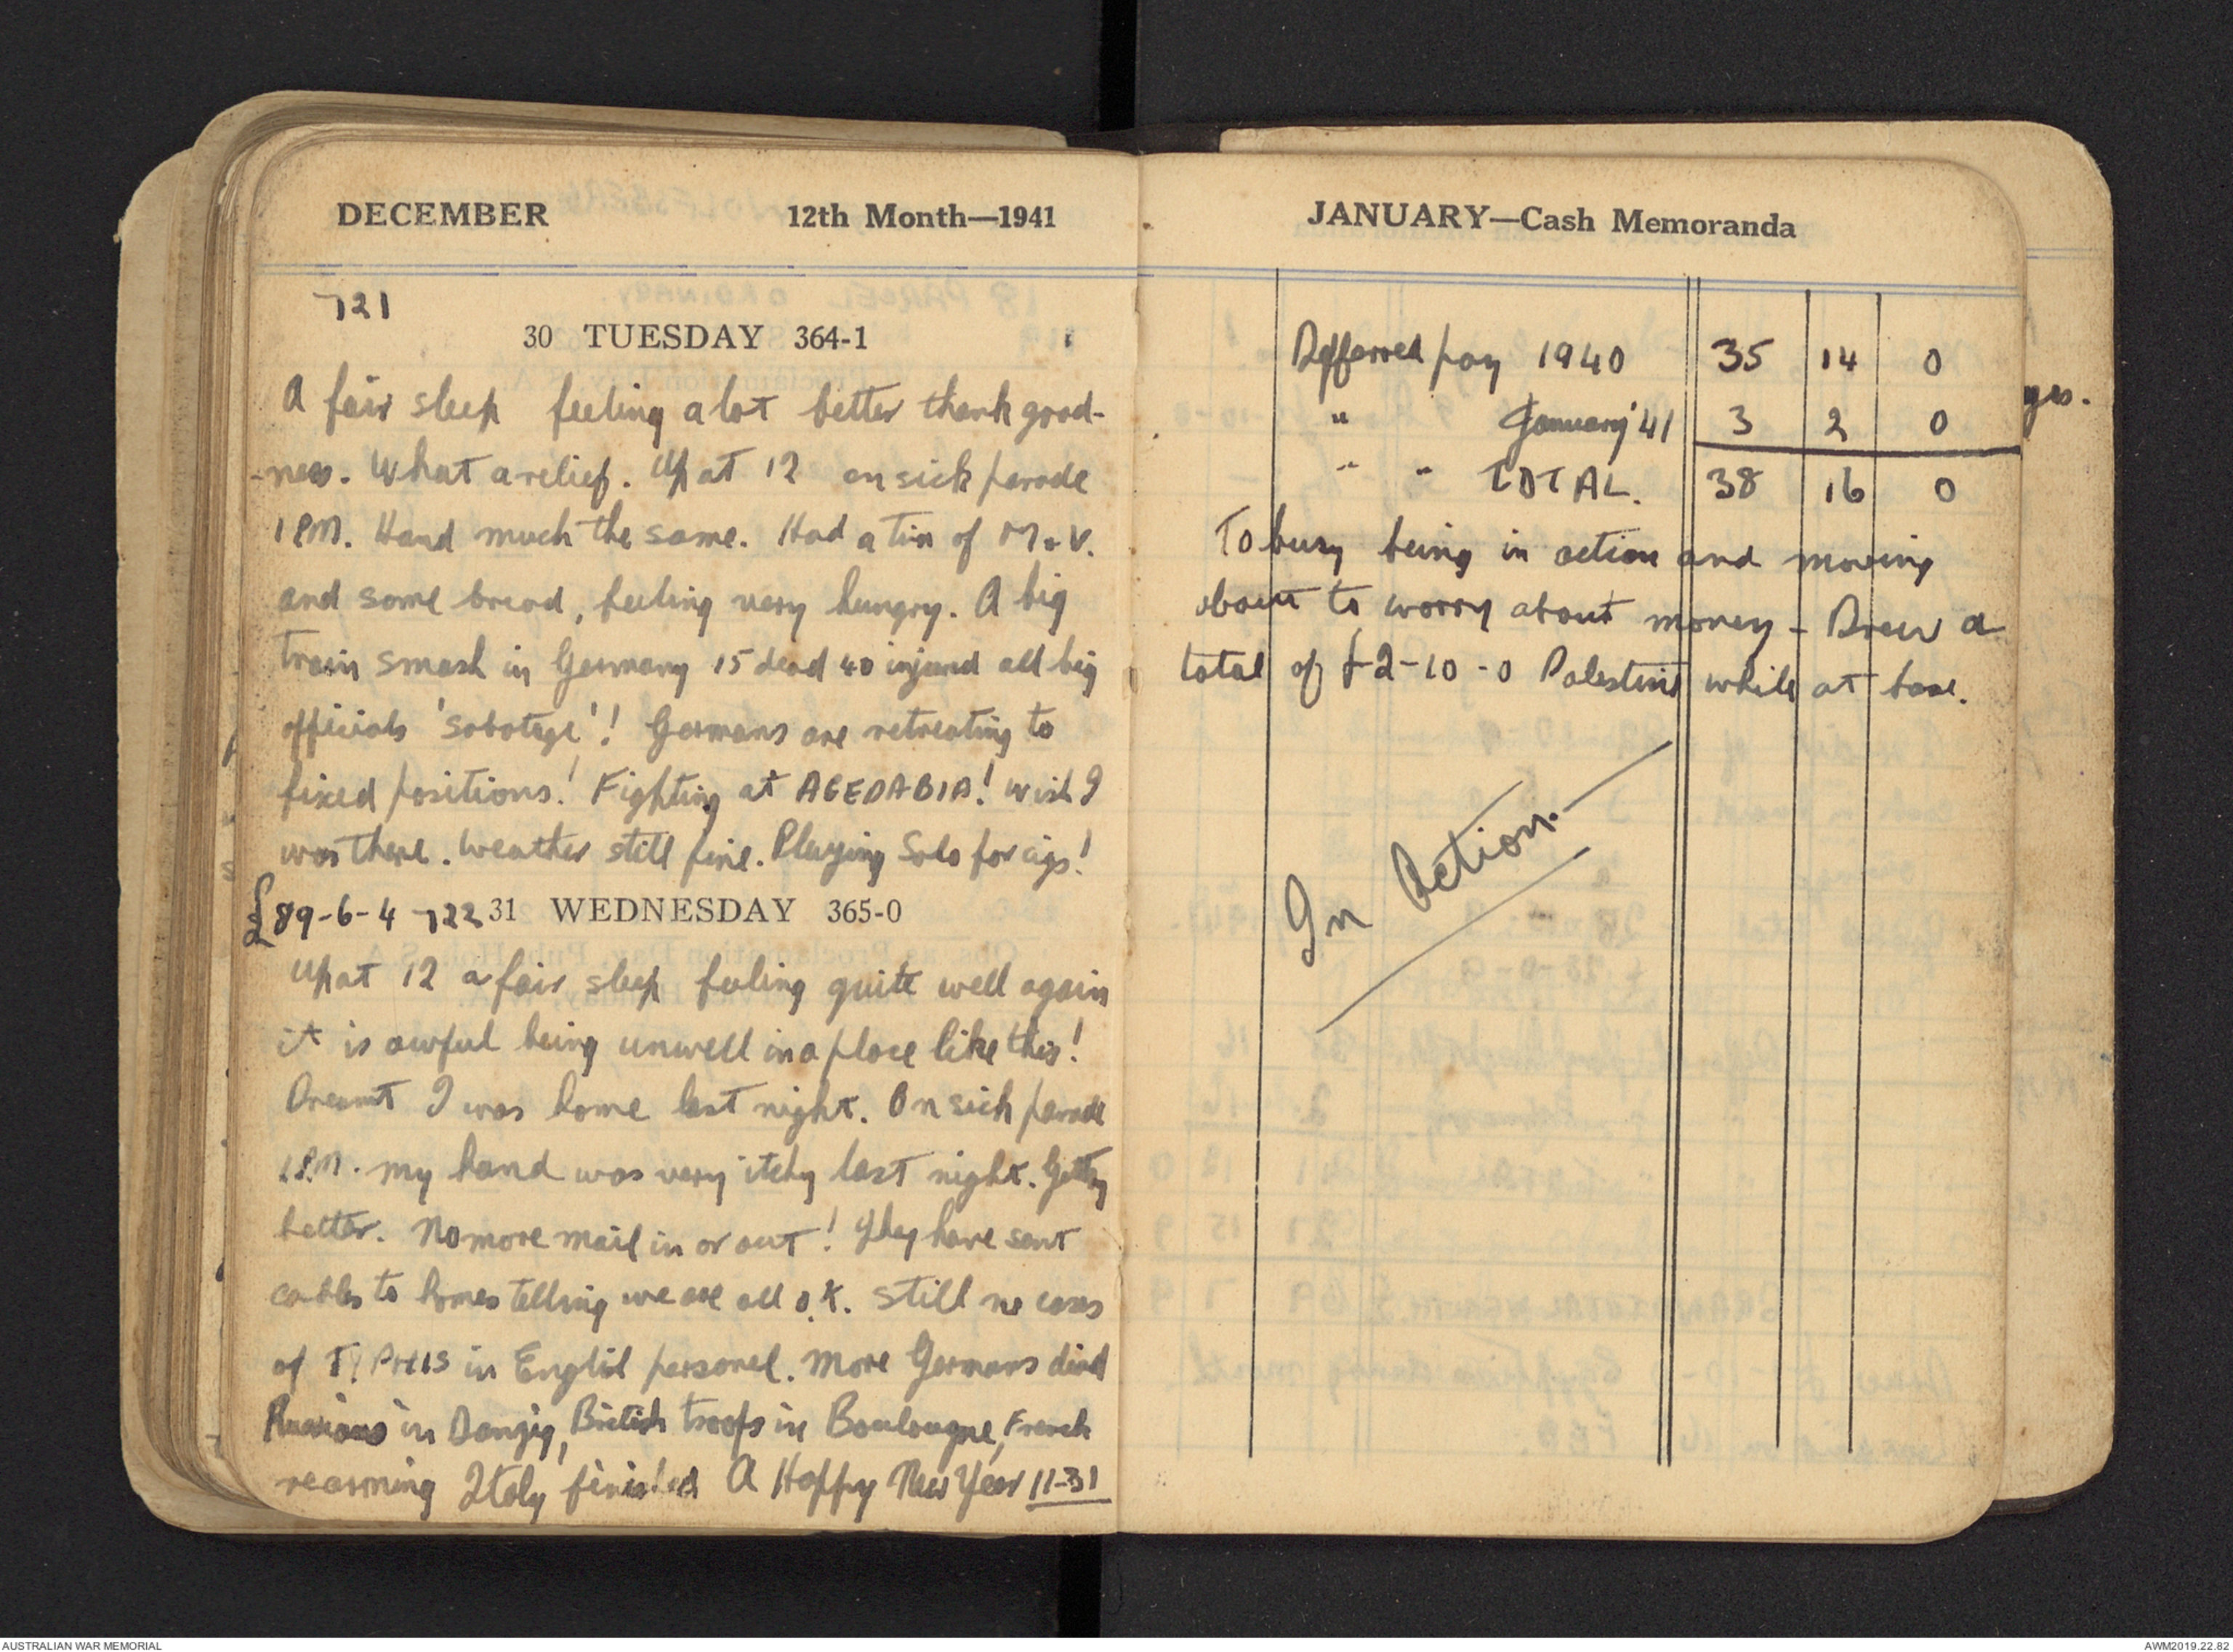 DECEMBER 12th Month—1941
721
30 TUESDAY 364-1
A fair sleep feeling a lot better thank good-
-ness. What a relief. Up at 12 on sick parade
1 PM. Hand much the same. Had a tin of M & V.
and some bread, feeling very hungry. A big
train smash in Germany 15 dead 40 injured all big
officials 'sabotage'! Germans are retreating to
fixed positions! Fighting at AGEDABIA! wish I
was there. Weather still fine. Playing Solo for cigs!
£89-6-4 722 31 WEDNESDAY 365-0
Up at 12 a fair sleep feeling quite well again
it is awful being unwell in a place like this!
Dreamt I was home last night. On sick parade
1 PM. my hand was very itchy last night. Getting
better. No more mail in or out! They have sent
cables to homes telling we are all O.K. still no cases
of TYPHUS in English personel. More Germans dead
Russians in Danzig, British troops in Boulougne, French
rearming Italy finished A Happy New Year 11-31
JANUARY—Cash Memoranda
Defferred pay 1940 35 14 0
" January '41 3 2 0
" " TOTAL. 38 16 0
To busy being in action and moving
about to worry about money - Drew a
total of £-2-10-0 Palestine while at base.
In Action.
ges.
AUSTRALIAN WAR MEMORIAL
AWM2019.22.82